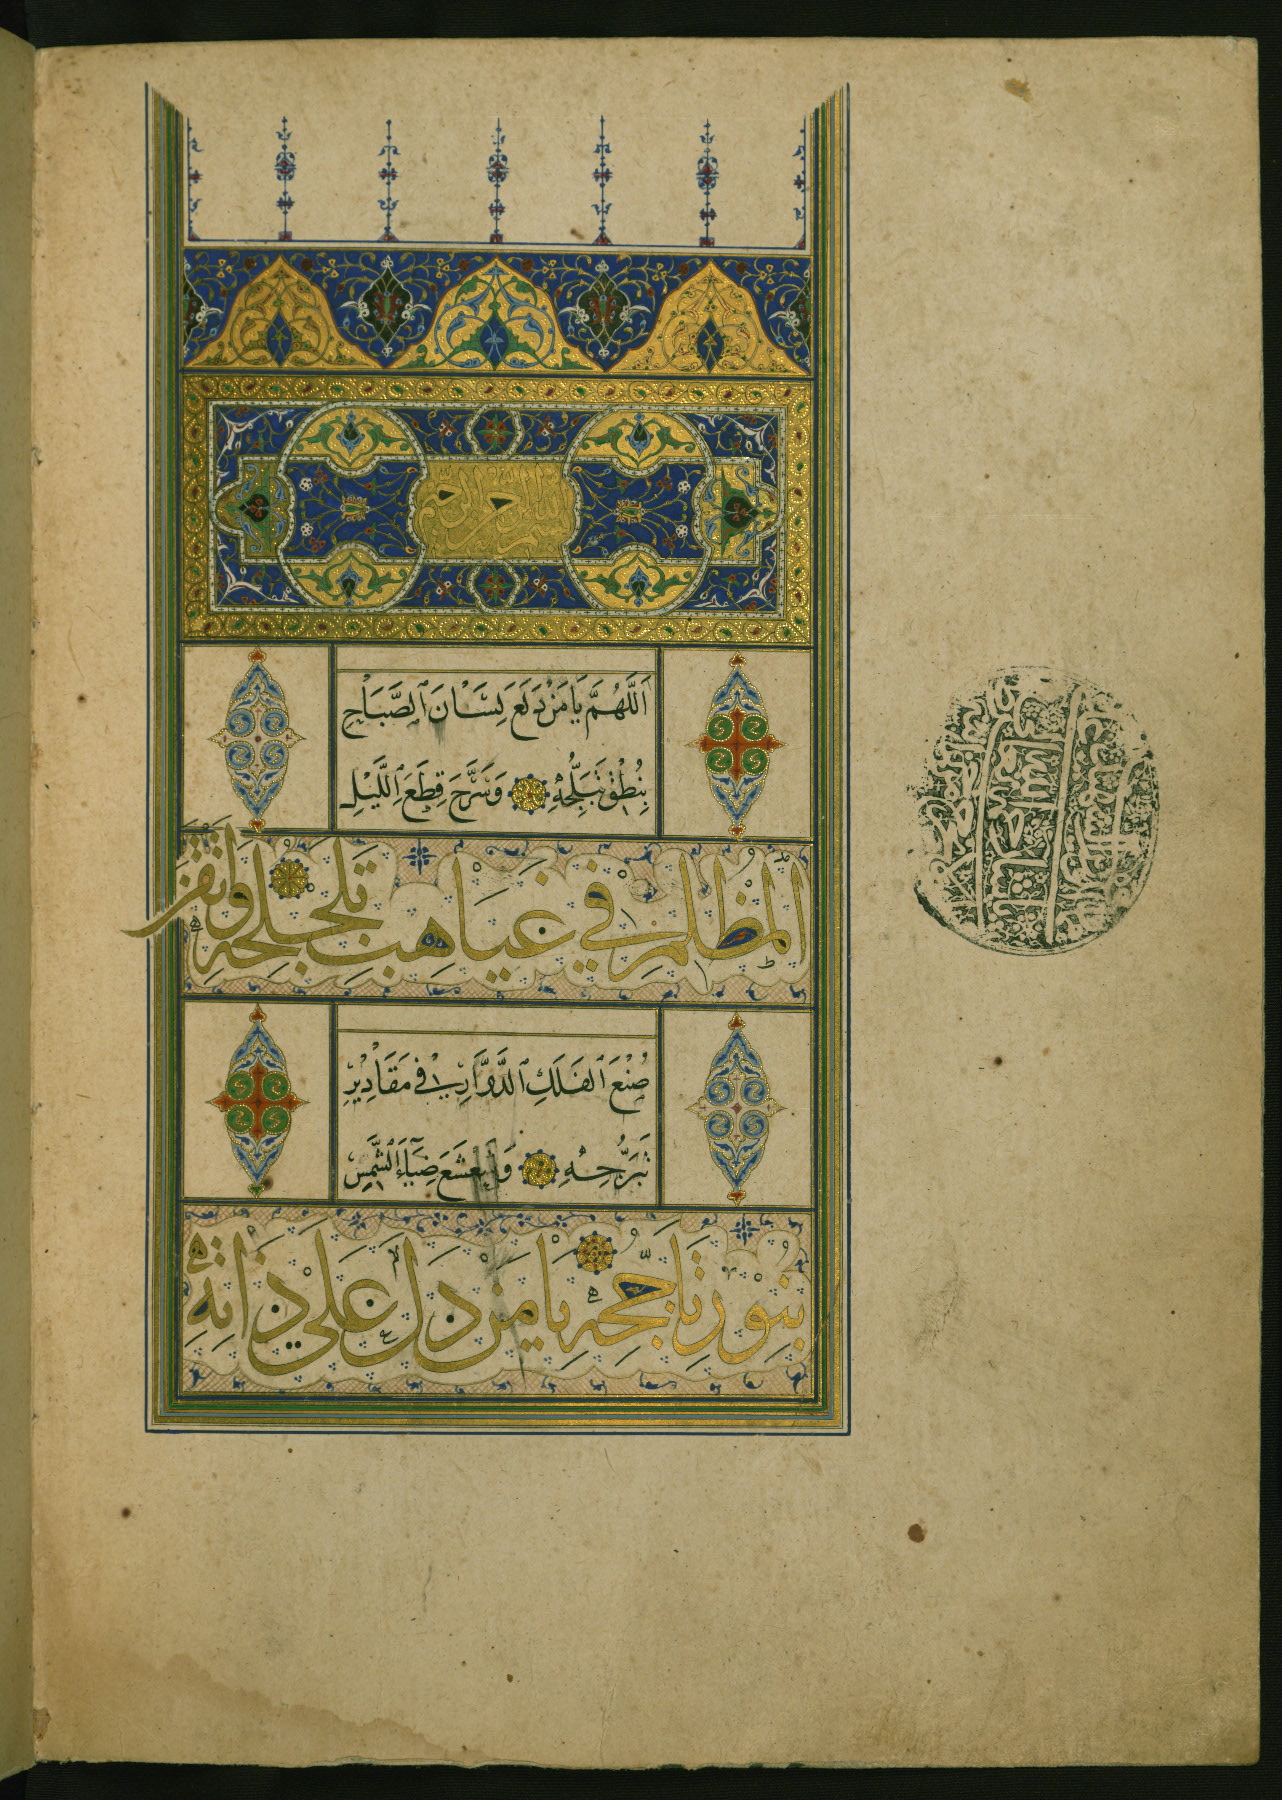 بسم الله الرحمن الرحيم
اَللّٰهُمَّ يَا مَنْ دَلَعَ لِسَانَ الصَّبَاحِ
بِنُطْقِ تَبَلُّجِهٖ وَسَرَّحَ قِطَعَ اللَّيْلِ
المظلم في غياهب تلجلجه واتقن
صُنْعَ الْفَلَكِ الدَّوَّارِ فِي مَقَادِيرِ
تَبَرُّجِهٖ وَشَعْشَعَ ضِيَاءَ الشَّمْسِ
بنور تاججه يا من دل على ذاته